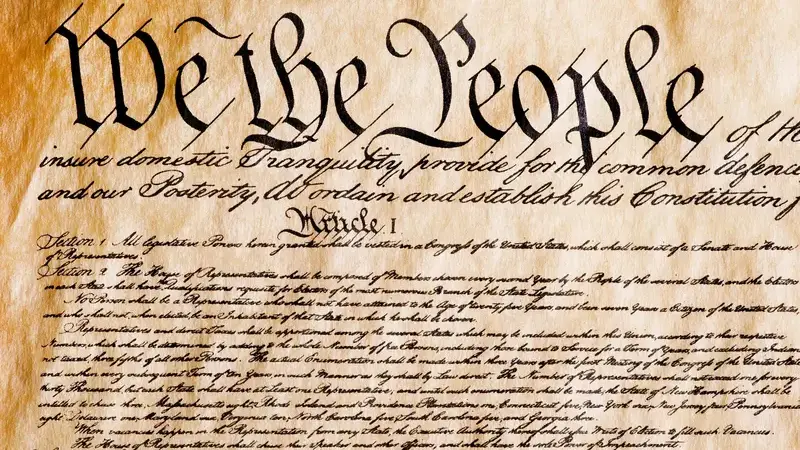 We the People of th
insure domestic Tranquility, provide for the common defence
and our Posterity, do ordain and establish this Constitution f
Article I
Section 1 All legislative Powers herein granted shall be vested in a Congress of the United States, which shall consist of a Senate and House
of Representatives.
Section 2 The House of Representatives shall be composed of Members chosen every second Year by the People of the several States, and the Electors
in each State shall have the Qualifications requisite for Electors of the most numerous Branch of the State Legislature.
No Person shall be a Representative who shall not have attained to the Age of twenty five Years, and been seven Years a Citizen of the United States,
and who shall not, when elected, be an Inhabitant of that State in which he shall be chosen
Representatives and direct Taxes shall be apportioned among the several States which may be included within this Union, according to their respective
Numbers, which shall be determined by adding to the whole Number of free Persons, including those bound to Service for a Term of Years, and excluding Indians
not taxed, three fifths of all other Persons. The actual Enumeration shall be made within three Years after the first Meeting of the Congress of the United States
and within every subsequent Term of ten Years, in such Manner as they shall by Law direct. The Number of Representatives shall not exceed one for every
thirty Thousand, but each State shall have at Least one Representative, and until such enumeration shall be made, the State of New Hampshire shall be
entitled to chuse three, Massachusetts eight, Rhode Island and Providence Plantations one, Connecticut five, New York six, New Jersey four, Pennsylvania
eight Delaware one, Maryland six, Virginia ten, North Carolina five, South Carolina five, and Georgia
When vacancies happen in the Representation from any State, the Executive Authority thereof shall issue Writs of Election to fill such Vacancies.
The House of Representatives shall chuse their Speaker and other Officers, and shall have the sole Power of Impeachment.